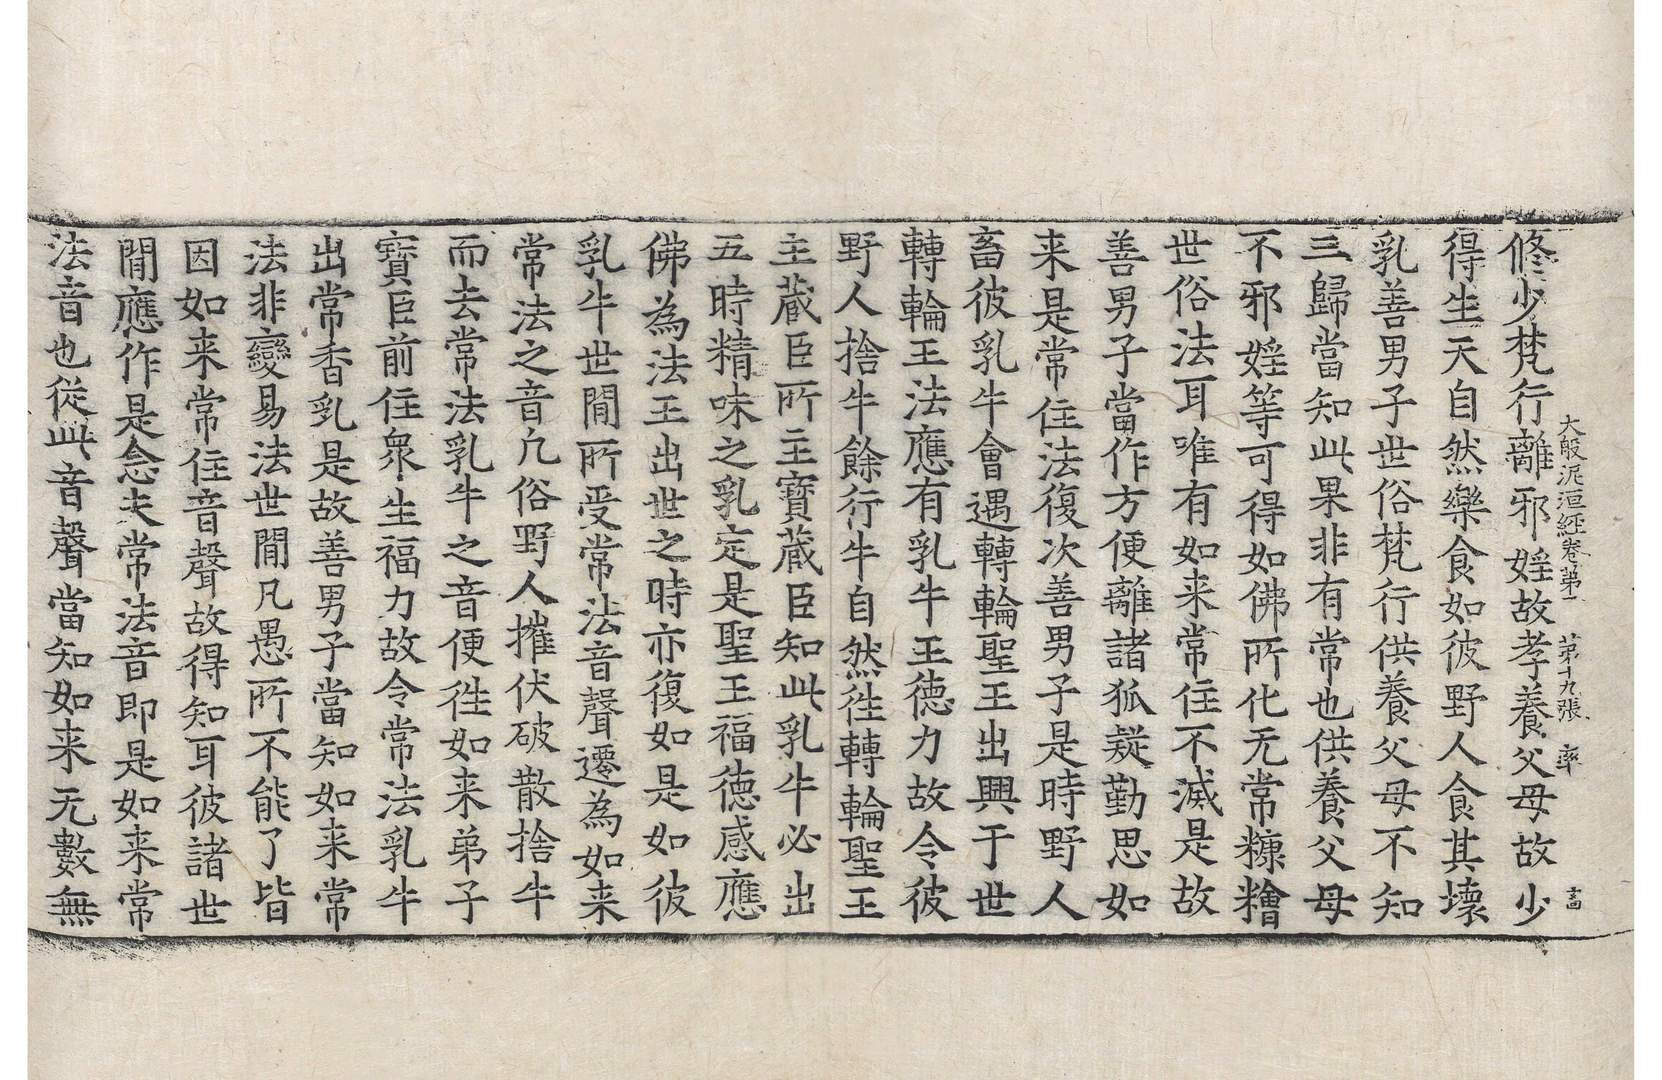 大般泥洹經卷第一　第十九張　率
十四
修少梵行離邪婬故孝養父母故少
得生天自然樂食如彼野人食其壞
乳善男子世俗梵行供養父母不知
三歸當知此果非有常也供養父母
不邪婬等可得如佛所化无常糠糩
世俗法耳唯有如来常住不滅是故
善男子當作方便離諸狐疑勤思如
来是常住法復次善男子是時野人
畜彼乳牛會遇轉輪聖王出興于世
轉輪王法應有乳牛王德力故令彼
野人捨牛餘行牛自然徃轉輪聖王
主藏臣所主寶藏臣知此乳牛必出
五時精味之乳定是聖王福德感應
佛為法王出世之時亦復如是如彼
乳牛世間所受常法音聲遷為如来
常法之音凡俗野人摧伏破散捨牛
而去常法乳牛之音便徃如来弟子
寶臣前住衆生福力故令常法乳牛
出常香乳是故善男子當知如来常
法非變易法世間凡愚所不能了皆
因如来常住音聲故得知耳彼諸世
間應作是念夫常法音即是如来常
法音也從此音聲當知如来无數無